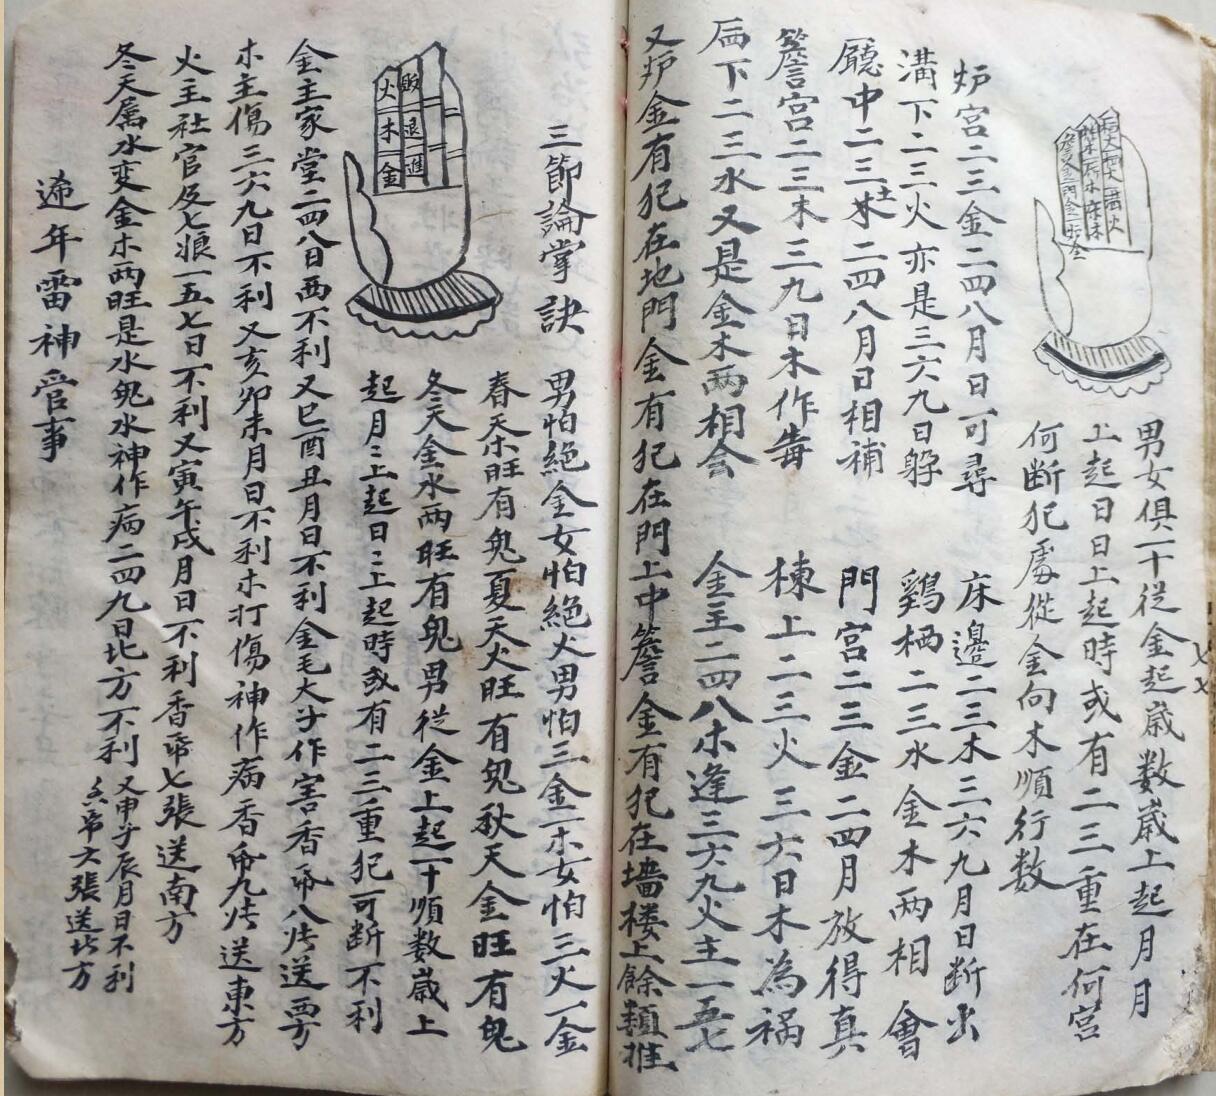 男女俱一十従金起歳数歳上起月月
上起日日上起時或有二三重在何宮
何断犯處從金向木順行数
炉宮二三金二四八月日可尋
床邊二三木三六九月日断出
溝下二三火亦是三六九日躲
鷄栖二三水金木两相會
廳中二三土二四八月日相補
門宮二三金二四月放得真
簷宮二三木三九日木作毒
棟上二三火三六日木為祸
下二三水又是金木两相会
金主二四八木逢三六九火主一五七
又炉金有犯在地門金有犯在門上中簷金有犯在墙楼上餘類推
三節論掌訣
火 木 金
退 進
男怕絕金女怕絕火男怕三金一木女怕三火一金
春天木旺有鬼夏天火旺有鬼秋天金旺有鬼
冬天金水两旺有鬼男従金上起一十順数歳上
起月三上起日三上起時或有二三重犯可断不利
金主家堂二四八日西不利又巳酉丑月日不利金毛大子作害香帋八張送西方
木主傷三六九日不利又亥卯未月日不利木打傷神作病香帋九张送東方
火主社官及七娘一五七日不利又寅午戌月日不利香帋七張送南方
冬天属水变金木两旺是水鬼水神作病二四九日北方不利
又申子辰月日不利
香帋六張送北方
逓年雷神管事